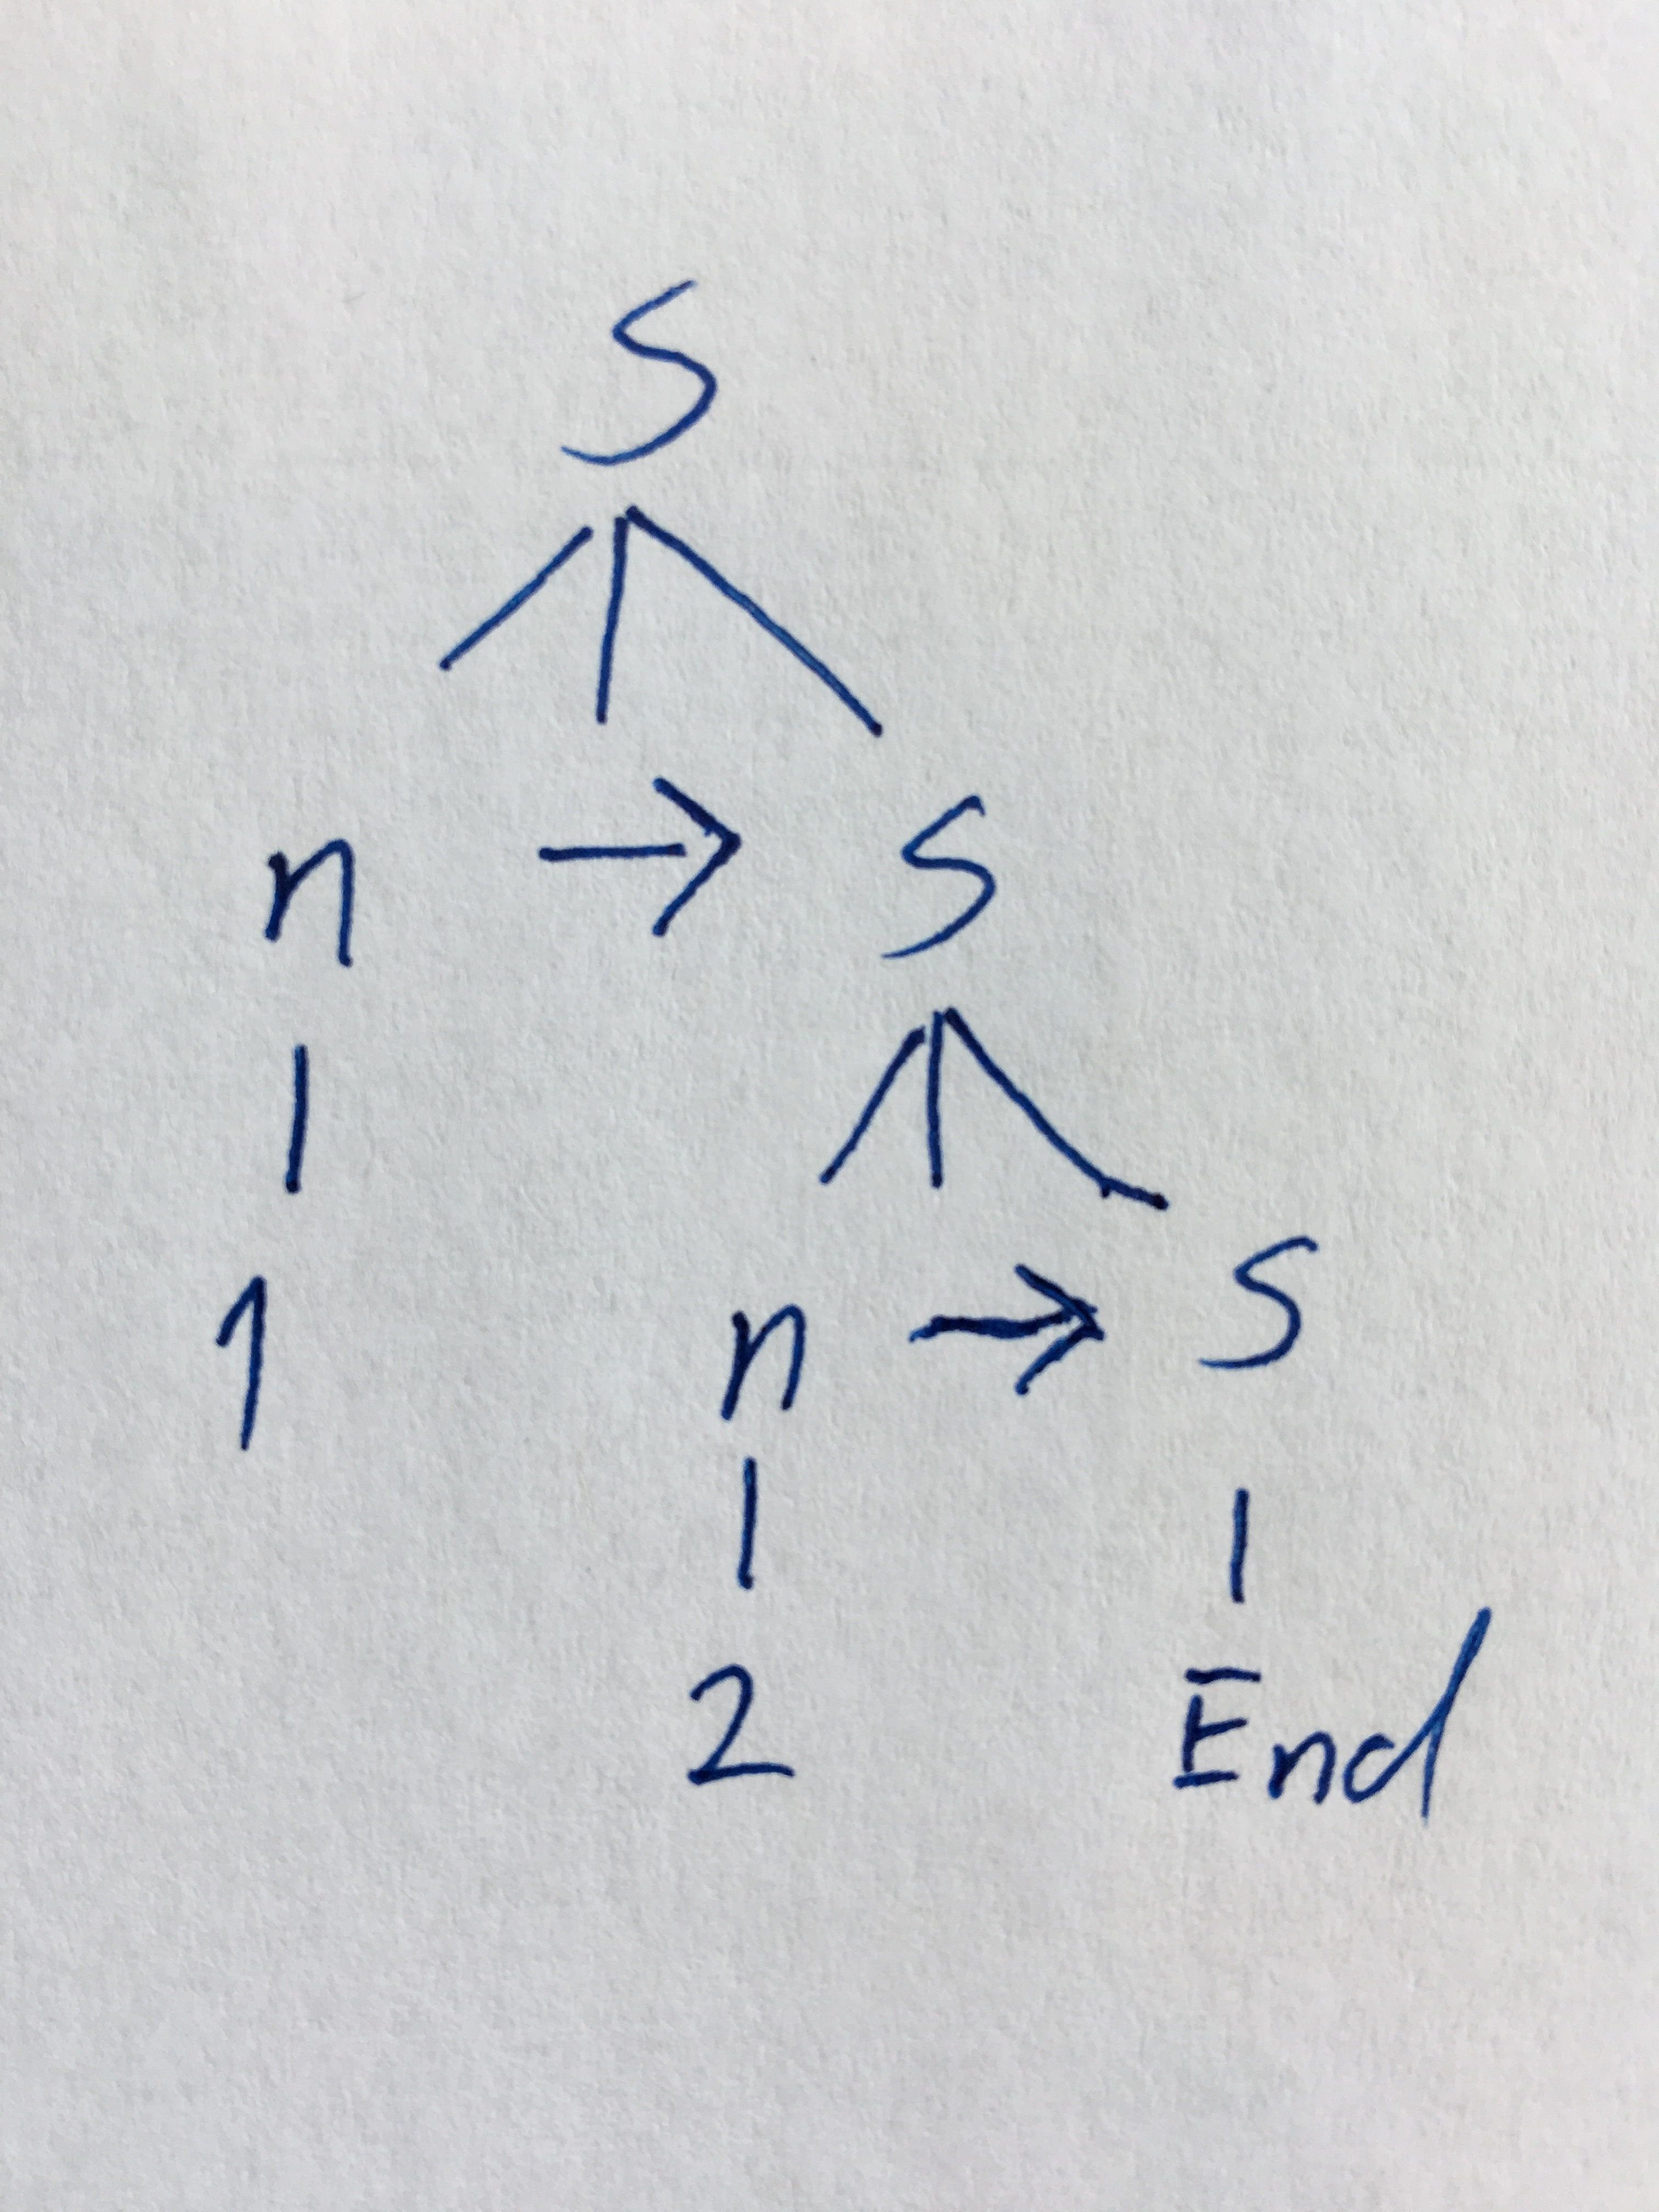 S
n → S
1 n → S
2 End